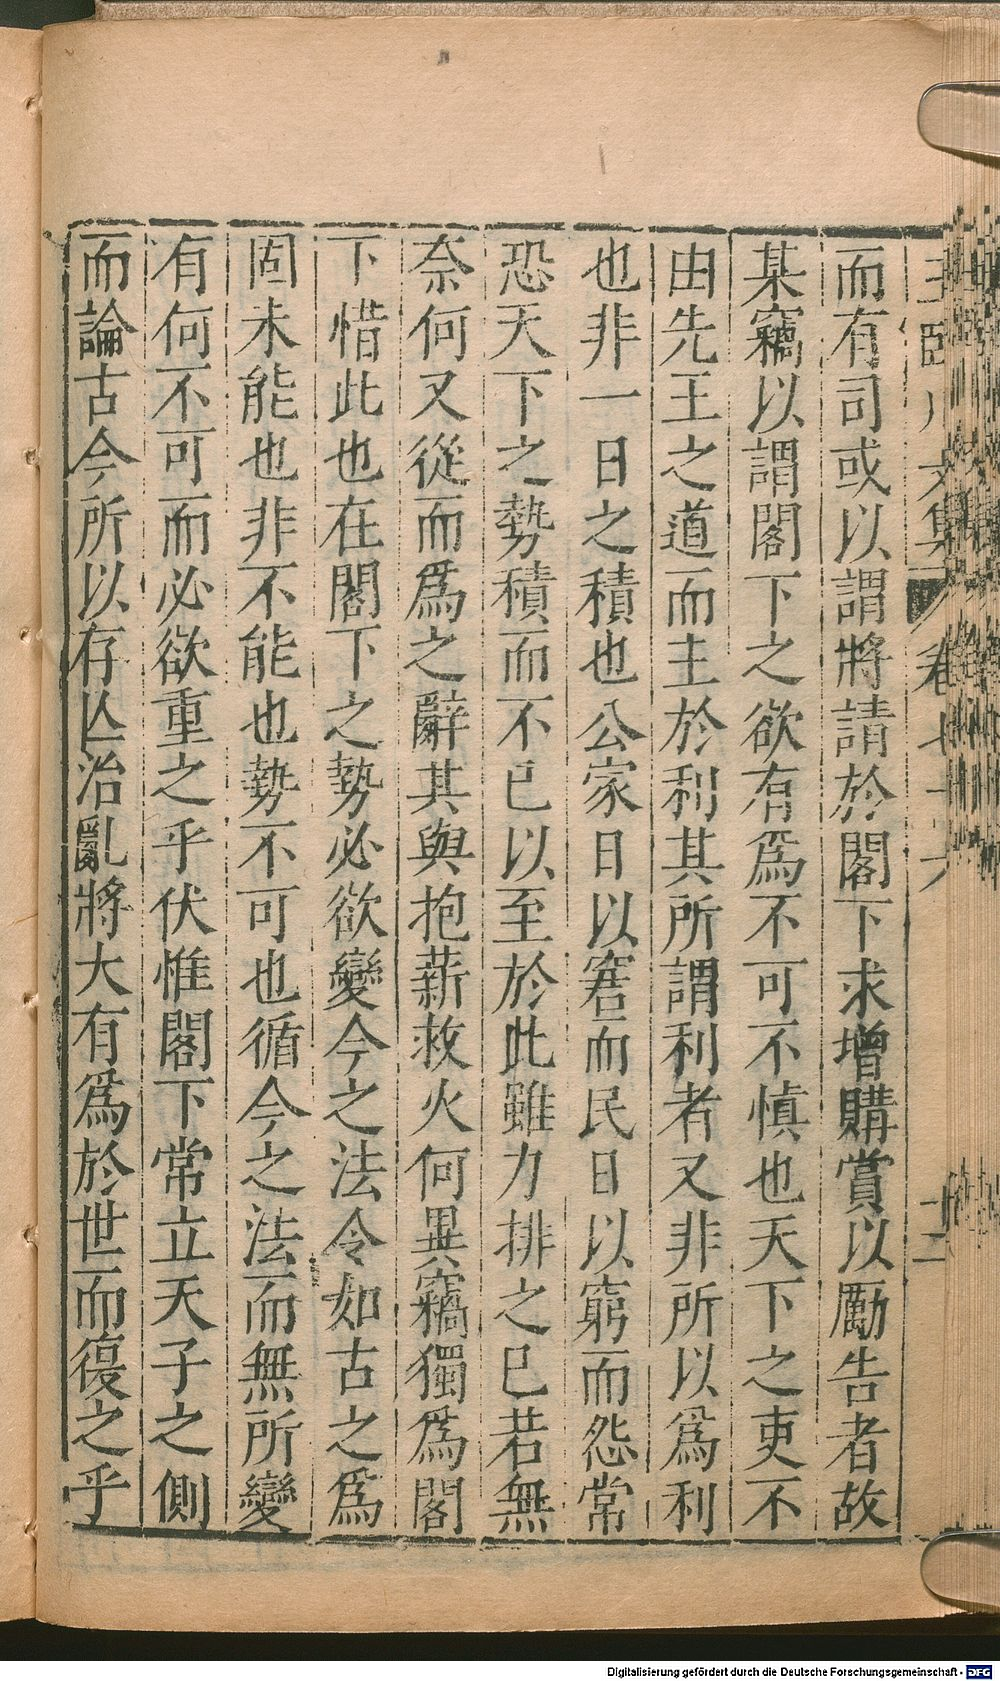 而有司或以謂將請於閣下求增購賞以勵告者故
某竊以謂閣下之欲有爲不可不慎也天下之吏不
由先王之道而主於利其所謂利者又非所以爲利
也非一日之積也公家日以窘而民日以窮而怨常
恐天下之勢積而不已以至於此雖力排之已若無
奈何又從而爲之辭其與抱薪救火何異竊獨爲閣
下惜此也在閣下之勢必欲變今之法令如古之爲
固未能也非不能也勢不可也循今之法而無所變
有何不可而必欲重之乎伏惟閣下常立天子之側
而論古今所以存亾治亂將大有爲於世而復之乎
Digitalisierung gefördert durch die Deutsche Forschungsgemeinschaft - DFG